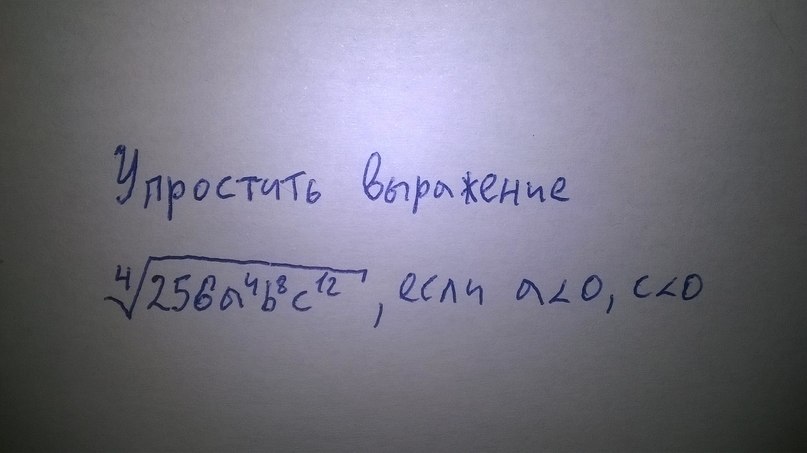 Упростить выражение
∜256a⁴b⁸c¹², если a<0, c<0